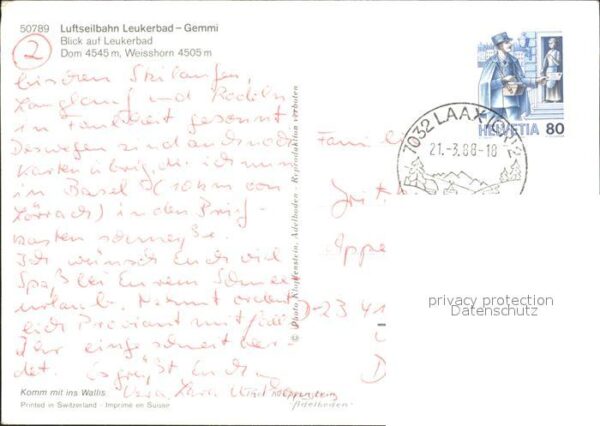 50789 Luftseilbahn Leukerbad – Gemmi
Blick auf Leukerbad
Dom 4545 m, Weisshorn 4505 m
2
Skilaufen,
Langlauf und Rodeln
in gesonnt
Deswegen sind auch noch
Karten übrig, die ich nun
in Basel (10 km von
Lörrach) in den Brief-
kasten schmeiße.
Ich wünsch Euch viel
Spaß bei Eurem Schnee-
urlaub. Nehmt ordent-
lich Proviant mit, falls
Ihr eingeschneit wer-
det. Es grüßt Euch
Komm mit ins Wallis
Printed in Switzerland - Imprimé en Suisse
© Photo Klopfenstein, Adelboden - Reproduktion verboten
Klopfenstein
Adelboden
HELVETIA 80
7032 LAAX
21.-3.88-18
Familie
D-23 41
privacy protection
Datenschutz